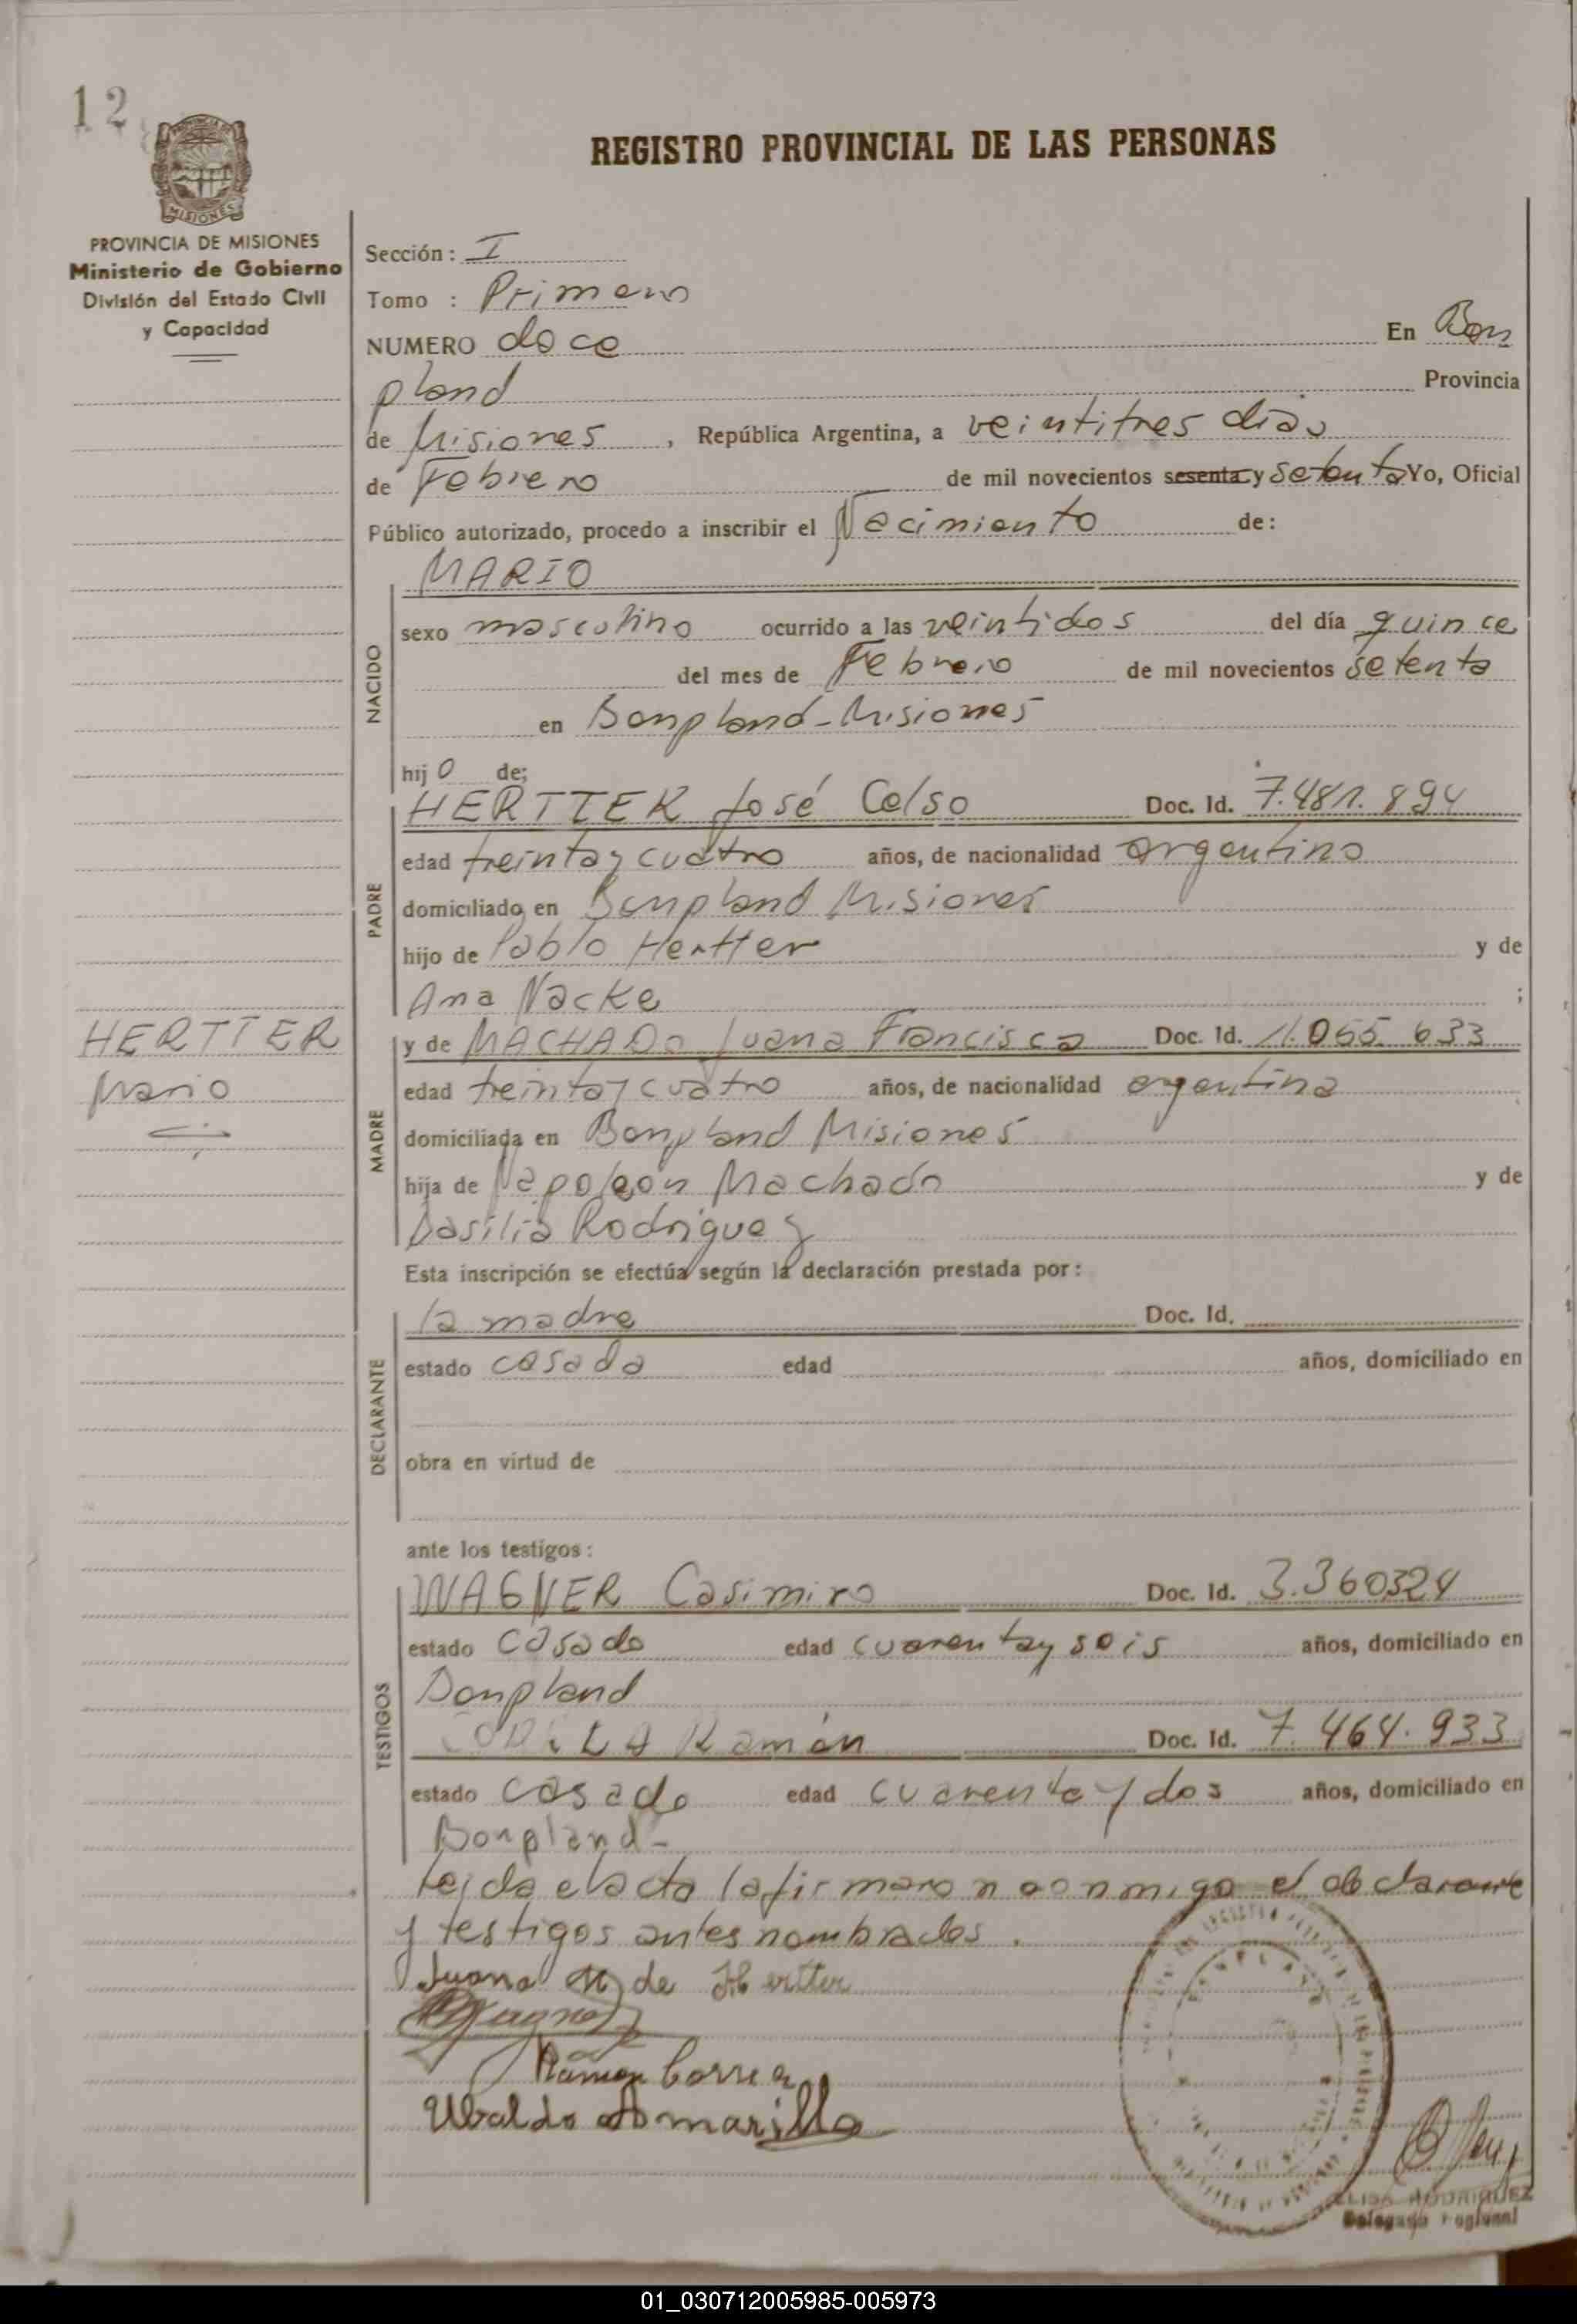 12
PROVINCIA DE MISIONES
Ministerio de Gobierno
División del Estado Civil
y Capacidad
REGISTRO PROVINCIAL DE LAS PERSONAS
Sección: I
Tomo : Primero
NUMERO doce En Bon
pland Provincia
de Misiones, República Argentina, a veintitres dias
de Febrero de mil novecientos sesenta y setenta Yo, Oficial
Público autorizado, procedo a inscribir el Nacimiento de:
NACIDO
MARIO
sexo masculino ocurrido a las veintidos del día quince
del mes de Febrero de mil novecientos setenta
en Bonpland-Misiones
hijo de;
PADRE
HERTTER José Celso Doc. Id. 7.481.894
edad treinta y cuatro años, de nacionalidad argentino
domiciliado en Bonpland Misiones
hijo de Pablo Hertter y de
Ana Nacke ;
HERTTER
Mario
MADRE
y de MACHADO Juana Francisca Doc. Id. 11.055.633
edad treinta y cuatro años, de nacionalidad argentina
domiciliada en Bonpland Misiones
hija de Napoleón Machado y de
Basilia Rodriguez
Esta inscripción se efectúa según la declaración prestada por:
DECLARANTE
la madre Doc. Id.
estado casada edad años, domiciliado en
obra en virtud de
ante los testigos:
TESTIGOS
WAGNER Casimiro Doc. Id. 3.360324
estado casado edad cuarenta y seis años, domiciliado en
Bonpland
Ramón Doc. Id. 7.464.933
estado casado edad cuarenta y dos años, domiciliado en
Bonpland-
Leida el acta la firmaron conmigo el declarante
y testigos antes nombrados.
Juana M de Hertter
Ramon Correa
Ubaldo Amarilla
ELISA RODRIGUEZ
Delegado Regional
01_030712005985-005973